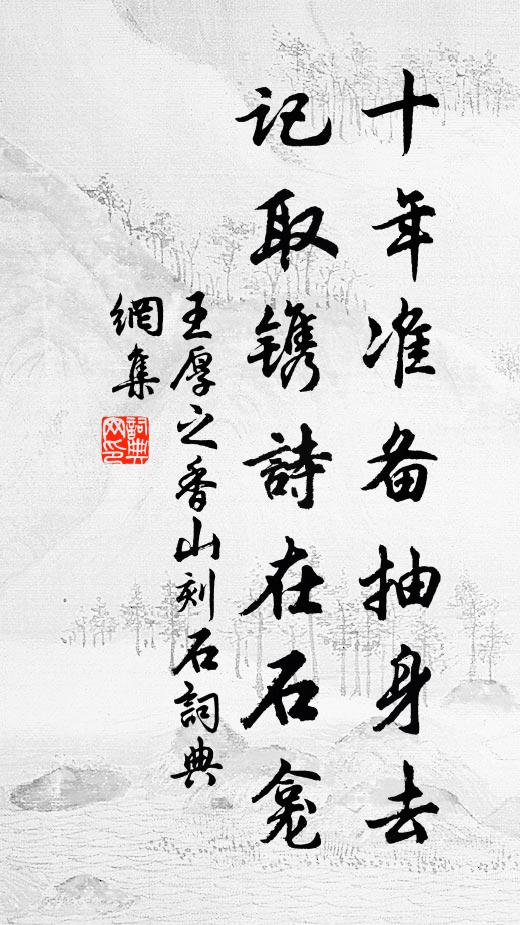 十年准备抽身去
记取镌詩在石龛
王厚之香山刻石詞典
網集
詞典
网印